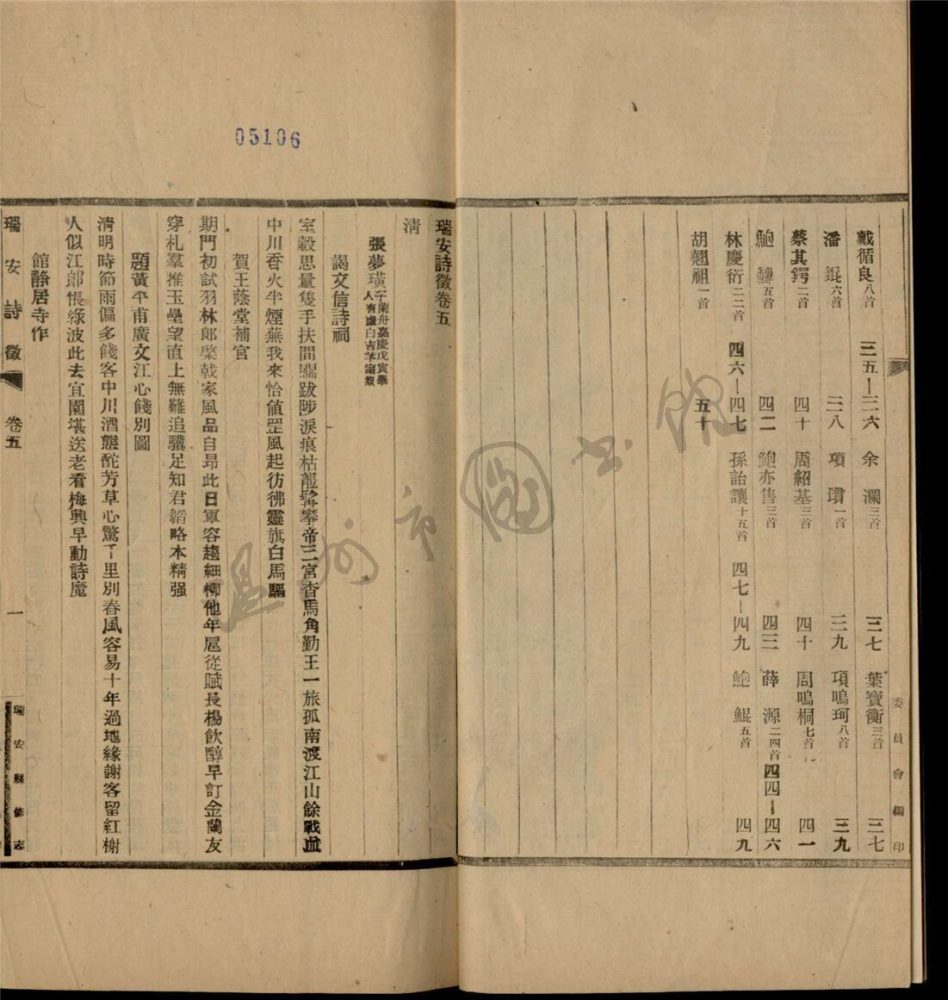 委員會編印
戴循良八首 三五—三六 余瀾三首 三七 葉寶衡三首 三七
潘錕六首 三八 項瓚一首 三九 項鳴珂八首 三九
蔡其鍔二首 四十 周紹基三首 四十 周鳴桐七首 四一
鮑鱅五首 四二 鮑亦售三首 四三 薛源二四首 四四—四六
林慶衍二二首 四六—四七 孫詒讓十五首 四七—四九 鮑鯤五首 四九
胡翹祖一首 五十
05106
瑞安詩徵卷五
清
張夢璜字蘭舟嘉慶戊寅舉人有虛白吉羊室集
謁文信詩祠
室毅思量隻手扶間關跋涉淚痕枯龍髯攀帝三宮杳馬角勤王一旅孤南渡江山餘戰血
中川香火半煙蕪我來恰値罡風起彷彿靈旗白馬驅
賀王蔭堂補官
期門初試羽林郎棨戟家風品自昂此日軍容趨細柳他年扈從賦長楊飲醇早訂金蘭友
穿札羣推玉壘望直上無難追驥足知君韜略本精强
題黃平甫廣文江心餞別圖
淸明時節雨偏多餞客中川酒醆酡芳草心驚千里別春風容易十年過地緣謝客留紅榭
人似江郎悵綠波此去宜園堪送老看梅興早動詩魔
館靜居寺作
瑞安詩徵 卷五 一 瑞安縣修志
溫州市圖書館